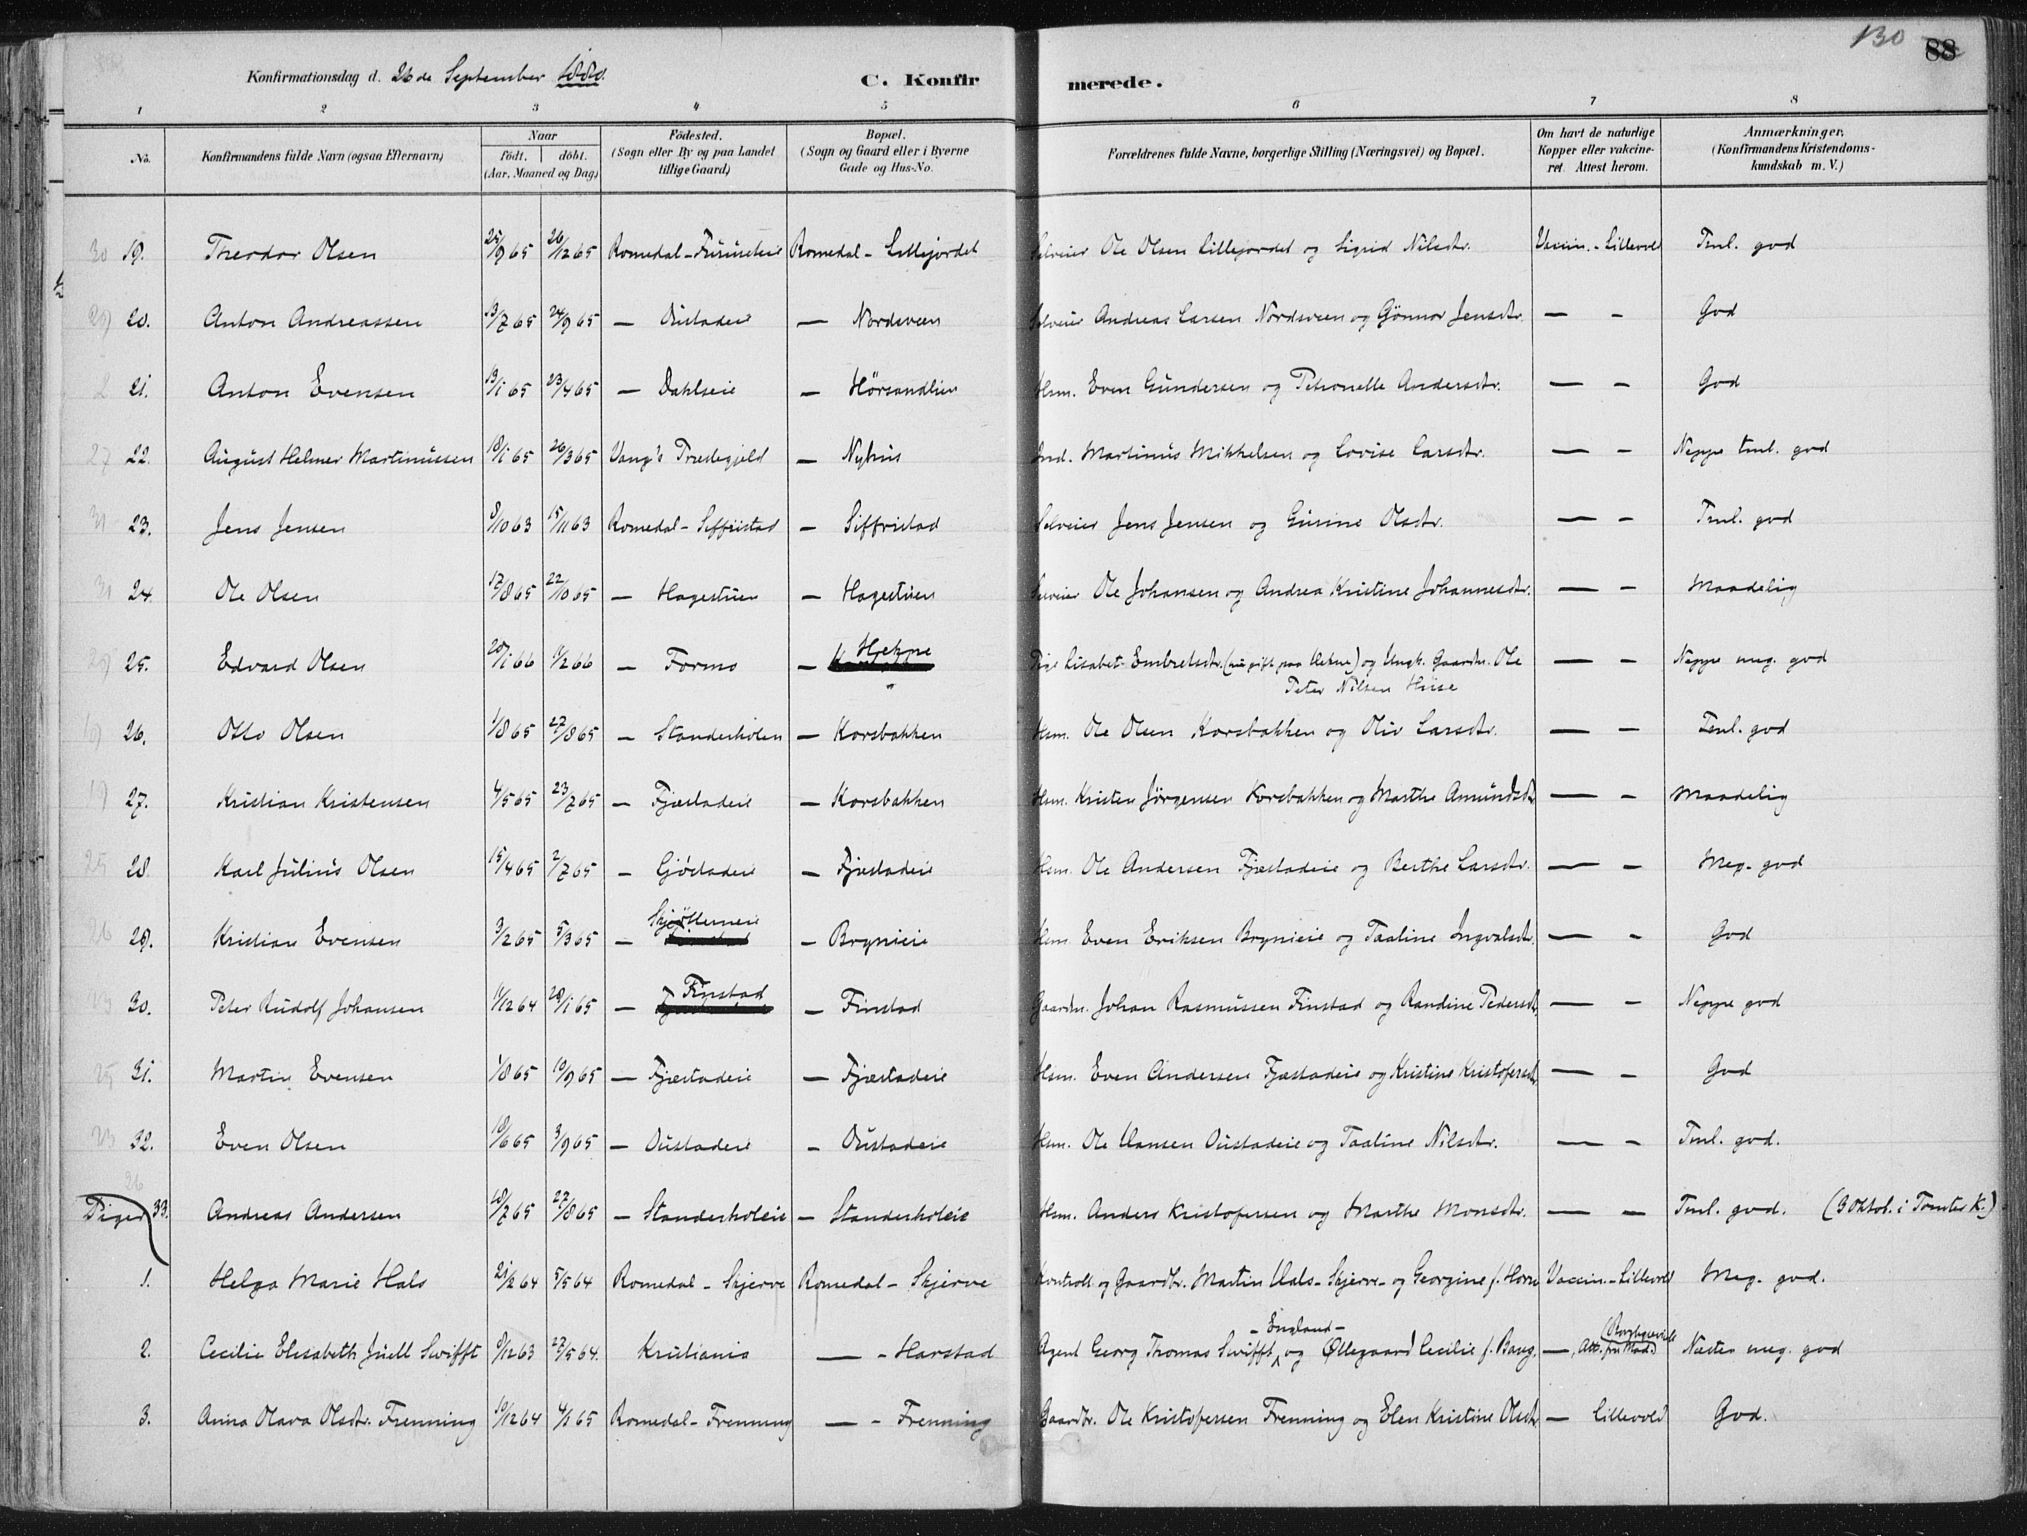 130 88
Konfirmationsdag d. 26de September 1880.
C. Konfirmerede.
1 2 3 4 5 6 7 8
No. Konfirmandens fulde Navn (ogsaa Efternavn) Naar födt. döbt. (Aar, Maaned og Dag) Födested. (Sogn eller By og paa Landet tillige Gaard) Bopæl. (Sogn og Gaard eller i Byerne Gade og Hus-No. Forældrenes fulde Navne, borgerlige Stilling (Næringsvei) og Bopæl. Om havt de naturlige Kopper eller vakcineret. Attest herom. Anmærkninger. (Konfirmandens Kristendomskundskab m. V.)
19. Theodor Olsen 25/9 65 26/12 65 Romedal - Romedal - Lillejordet Selveier Ole Olsen Lillejordet og Sigrid Nilsdtr. Vaccin. - Lillevold Tml. god
20. Anton Andreassen 13/7 65 24/9 65 — Oustadeie — Nordsveen Selveier Andreas Larsen Nordsveen og Gönnor Jensdtr. — - God
21. Anton Evensen 13/1 65 23/4 65 — Dahlseie — Hörsandlien Hsm. Even Gundersen og Petronelle Andersdtr. — - God
22. August Helmer Martinussen 18/1 65 26/3 65 Vang's Præstegjeld — Nyhus Ind. Martinus Mikkelsen og Lovise Larsdtr. — - Neppe tml. god
23. Jens Jensen 8/10 63 15/11 63 Romedal - Siffristad — Siffristad Selveier Jens Jensen og Gurine Olsdtr. — - Tml. god
24. Ole Olsen 17/8 65 22/10 65 — Hagestuen — Hagestuen Selveier Ole Johansen og Andrea Kristine Johannesdtr. — - Maadelig
25. Edvard Olsen 20/1 66 /2 66 — Formo — Hekne Pige Lisabet Embretsdtr. (nu gift paa Hekne) og Ungk. Gaardm. Ole — - Neppe meg. god
Peter Nilsen Huse
26. Otto Olsen 1/8 65 27/8 65 — Standerholen — Korsbakken Hsm. Ole Olsen Korsbakken og Oliv Larsdtr. — - Tml. god
27. Kristian Kristensen 4/5 65 23/7 65 — Fjæstadeie — Korsbakken Hsm. Kristen Jörgensen Korsbakken og Marthe Amundsdtr. — - Maadelig
28. Karl Julius Olsen 15/4 65 2/7 65 — Gjöstadeie — Fjæstadeie Hsm. Ole Andersen Fjæstadeie og Berthe Larsdtr. — - Meg. god
29. Kristian Evensen 3/2 65 5/3 65 — — Brynieie Hsm. Even Eriksen Brynieie og Taaline Ingvalsdtr. — - God
30. Peter Rudolf Johansen /12 64 28/1 65 — Finstad — Finstad Gaardm. Johan Rasmussen Finstad og Randine Pedersdtr. — - Neppe god
31. Martin Evensen 1/8 65 10/9 65 — Fjæstadeie — Fjæstadeie Hsm. Even Andersen Fjæstadeie og Kristine Kristofersdtr. — - God
32. Even Olsen 10/6 65 3/9 65 — Oustadeie — Oustadeie Hsm. Ole Hansen Oustadeie og Taaline Nilsdtr. — - Tml. god.
33. Andreas Andersen 18/7 65 27/8 65 — Standerholeie — Standerholeie Hsm. Anders Kristofersen og Marthe Monsdtr. — - Tml. god. (3 Oktob. i Tomter K.)
Piger
1. Helga Marie Hals 21/2 64 5/5 64 Romedal - Skjerve Romedal - Skjerve Kontroll. og Gaardbr. Martin Hals - Skjerve - og Georgine f. Horn Vaccin. - Lillevold Meg. god.
2. Cecilie Elisabeth Juell Swifft 8/12 63 27/5 64. Kristiania — - Harstad Agent Georg Thomas Swifft - England - og Øllegaard Cecilie f. Bang. —, Næsten meg. god
3. Anna Olava Olsdtr. Frenning 10/12 64 4/1 65 Romedal - Frenning — - Frenning Gaardbr. Ole Kristofersen Frenning og Elen Kristine Olsdtr — Lillevold God.